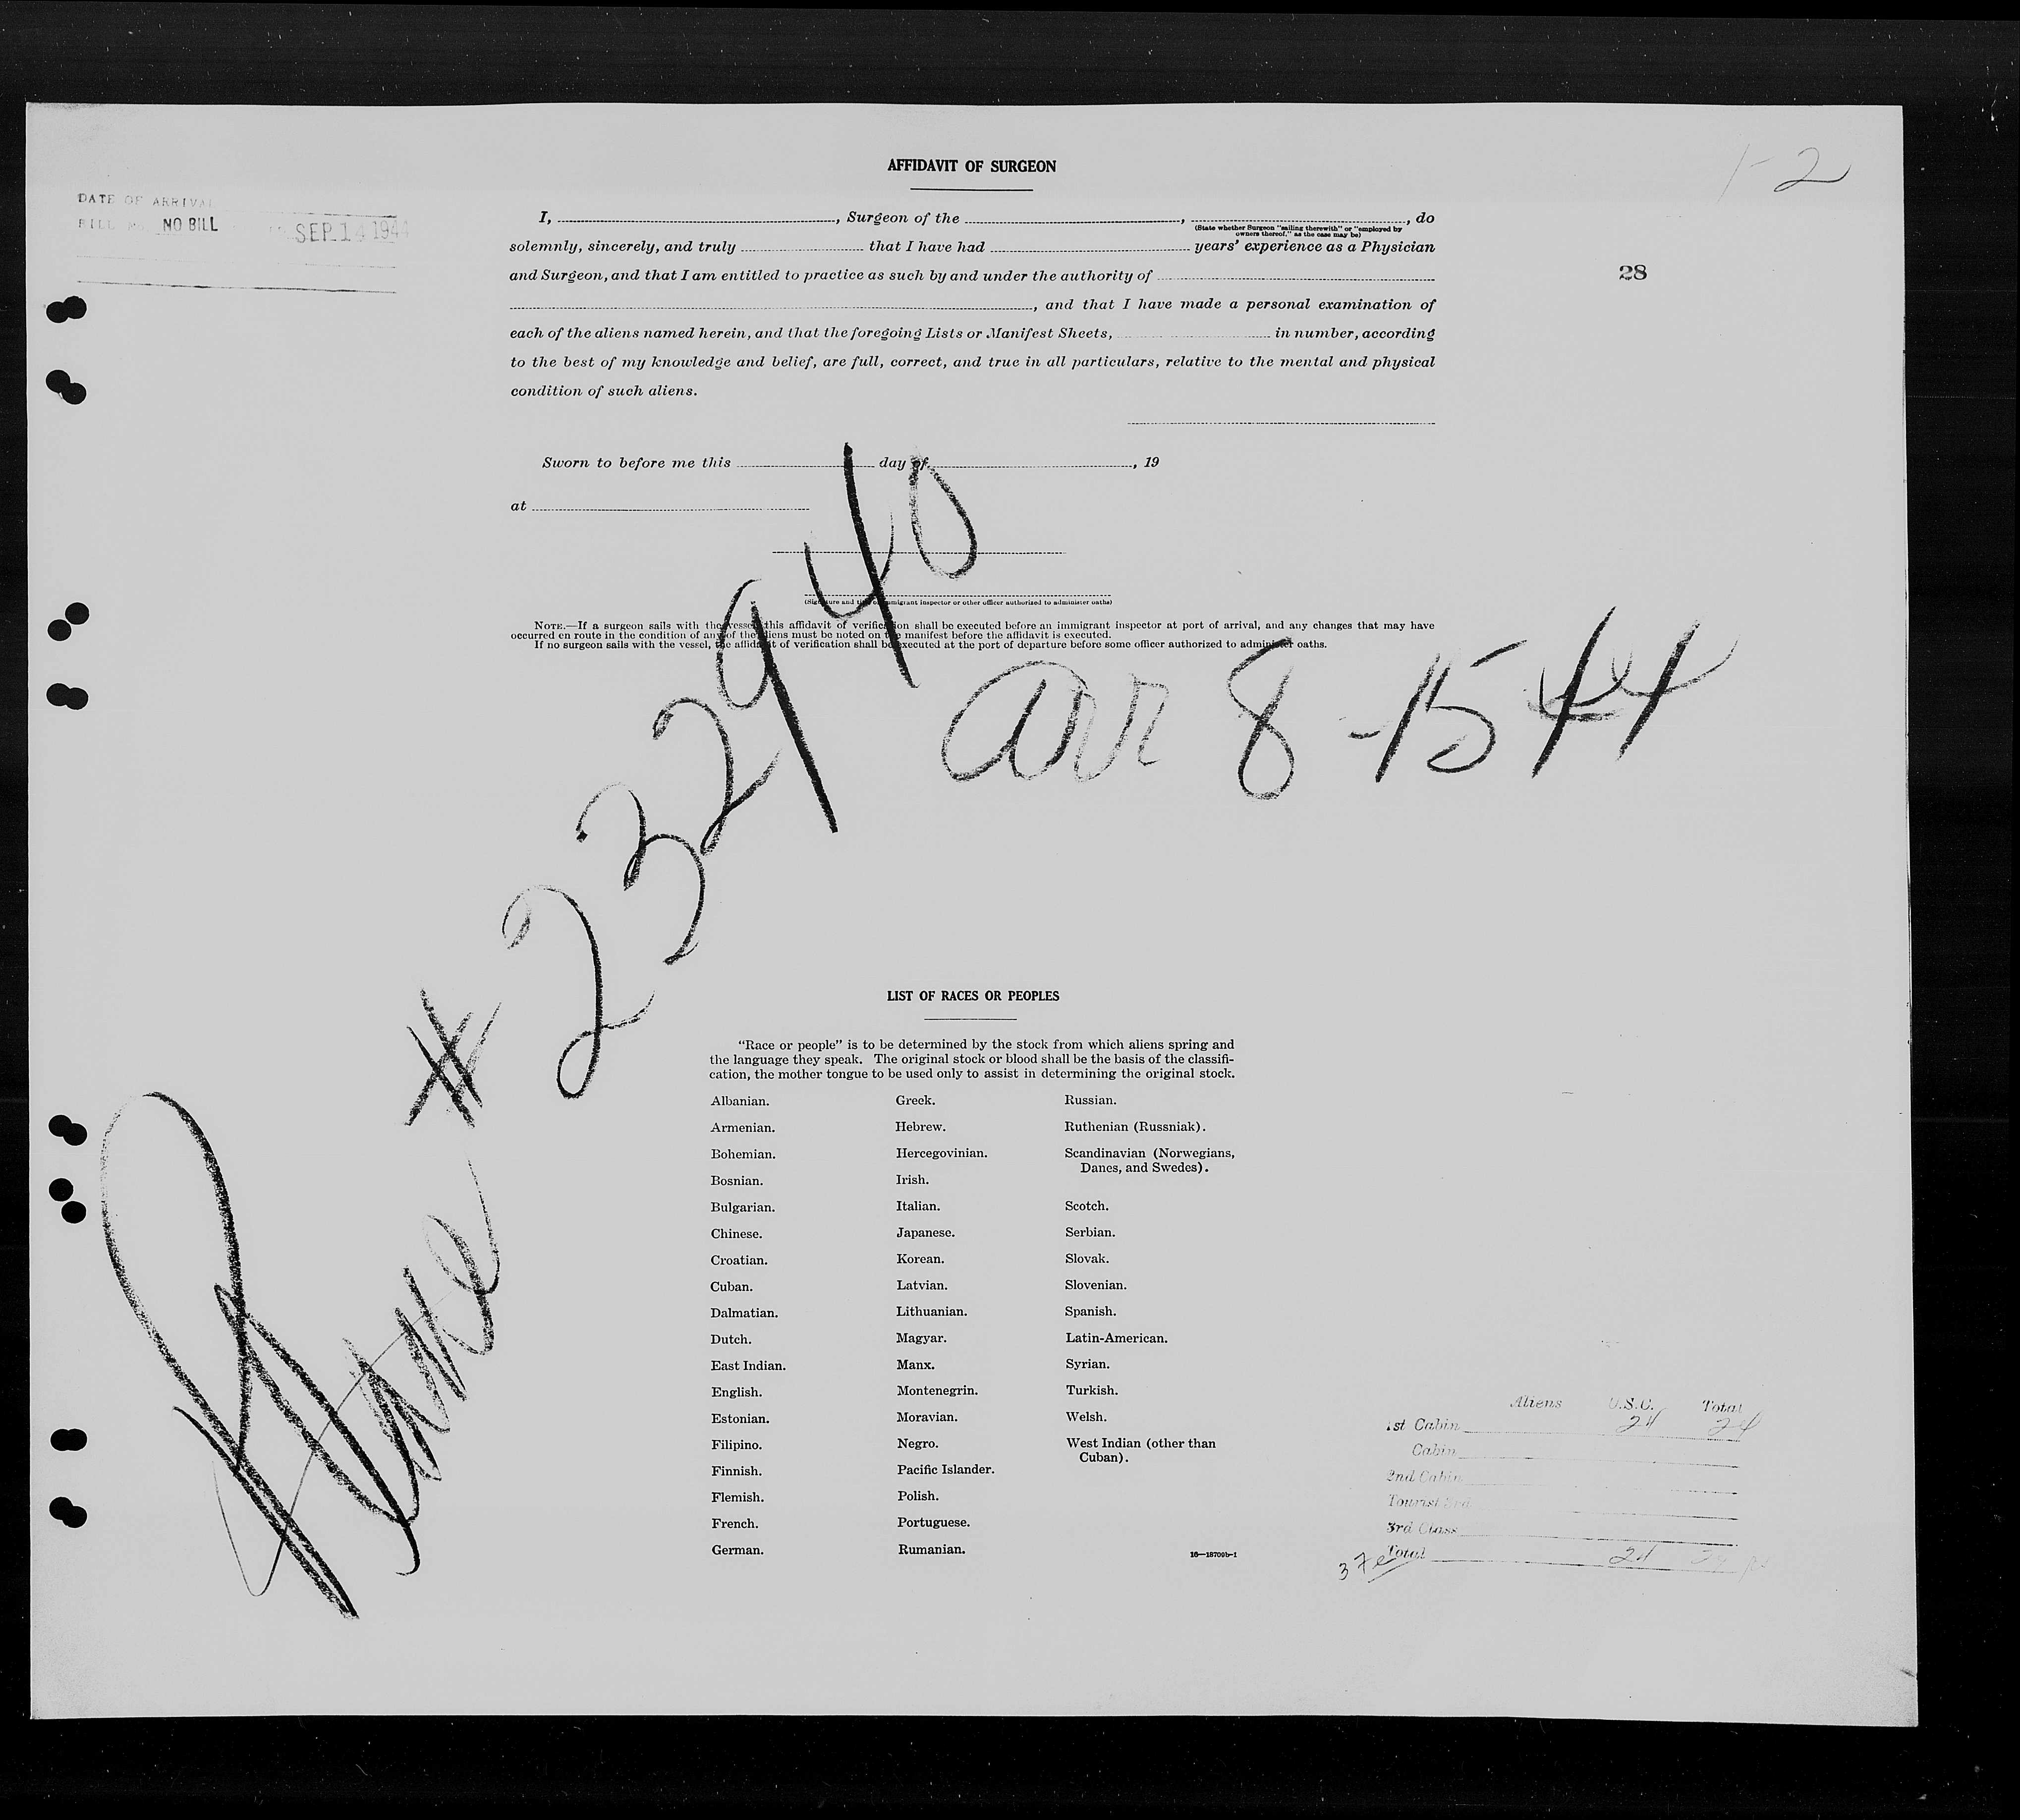 AFFIDAVIT OF SURGEON
1-2
DATE OF ARRIVAL
BILL NO. NO BILL SEP 14 1944
I, ________, Surgeon of the ________, ________, do
(State whether Surgeon "sailing therewith" or "employed by
owners thereof," as the case may be)
solemnly, sincerely, and truly ________ that I have had ________ years' experience as a Physician
and Surgeon, and that I am entitled to practice as such by and under the authority of ________
28
________, and that I have made a personal examination of
each of the aliens named herein, and that the foregoing Lists or Manifest Sheets, ________ in number, according
to the best of my knowledge and belief, are full, correct, and true in all particulars, relative to the mental and physical
condition of such aliens.
Sworn to before me this ________ day of ________, 19
at ________
(Signature and title of immigrant inspector or other officer authorized to administer oaths)
NOTE.—If a surgeon sails with the vessel, this affidavit of verification shall be executed before an immigrant inspector at port of arrival, and any changes that may have
occurred en route in the condition of any of the aliens must be noted on the manifest before the affidavit is executed.
If no surgeon sails with the vessel, the affidavit of verification shall be executed at the port of departure before some officer authorized to administer oaths.
Plane # 232940
arr 8-15-44
LIST OF RACES OR PEOPLES
"Race or people" is to be determined by the stock from which aliens spring and
the language they speak. The original stock or blood shall be the basis of the classifi-
cation, the mother tongue to be used only to assist in determining the original stock.
Albanian.
Armenian.
Bohemian.
Bosnian.
Bulgarian.
Chinese.
Croatian.
Cuban.
Dalmatian.
Dutch.
East Indian.
English.
Estonian.
Filipino.
Finnish.
Flemish.
French.
German.
Greek.
Hebrew.
Hercegovinian.
Irish.
Italian.
Japanese.
Korean.
Latvian.
Lithuanian.
Magyar.
Manx.
Montenegrin.
Moravian.
Negro.
Pacific Islander.
Polish.
Portuguese.
Rumanian.
Russian.
Ruthenian (Russniak).
Scandinavian (Norwegians,
Danes, and Swedes).
Scotch.
Serbian.
Slovak.
Slovenian.
Spanish.
Latin-American.
Syrian.
Turkish.
Welsh.
West Indian (other than
Cuban).
16—18709b-1
Aliens U.S.C. Total
1st Cabin 24 24
Cabin
2nd Cabin
Tourist 3rd
3rd Class
Total 24